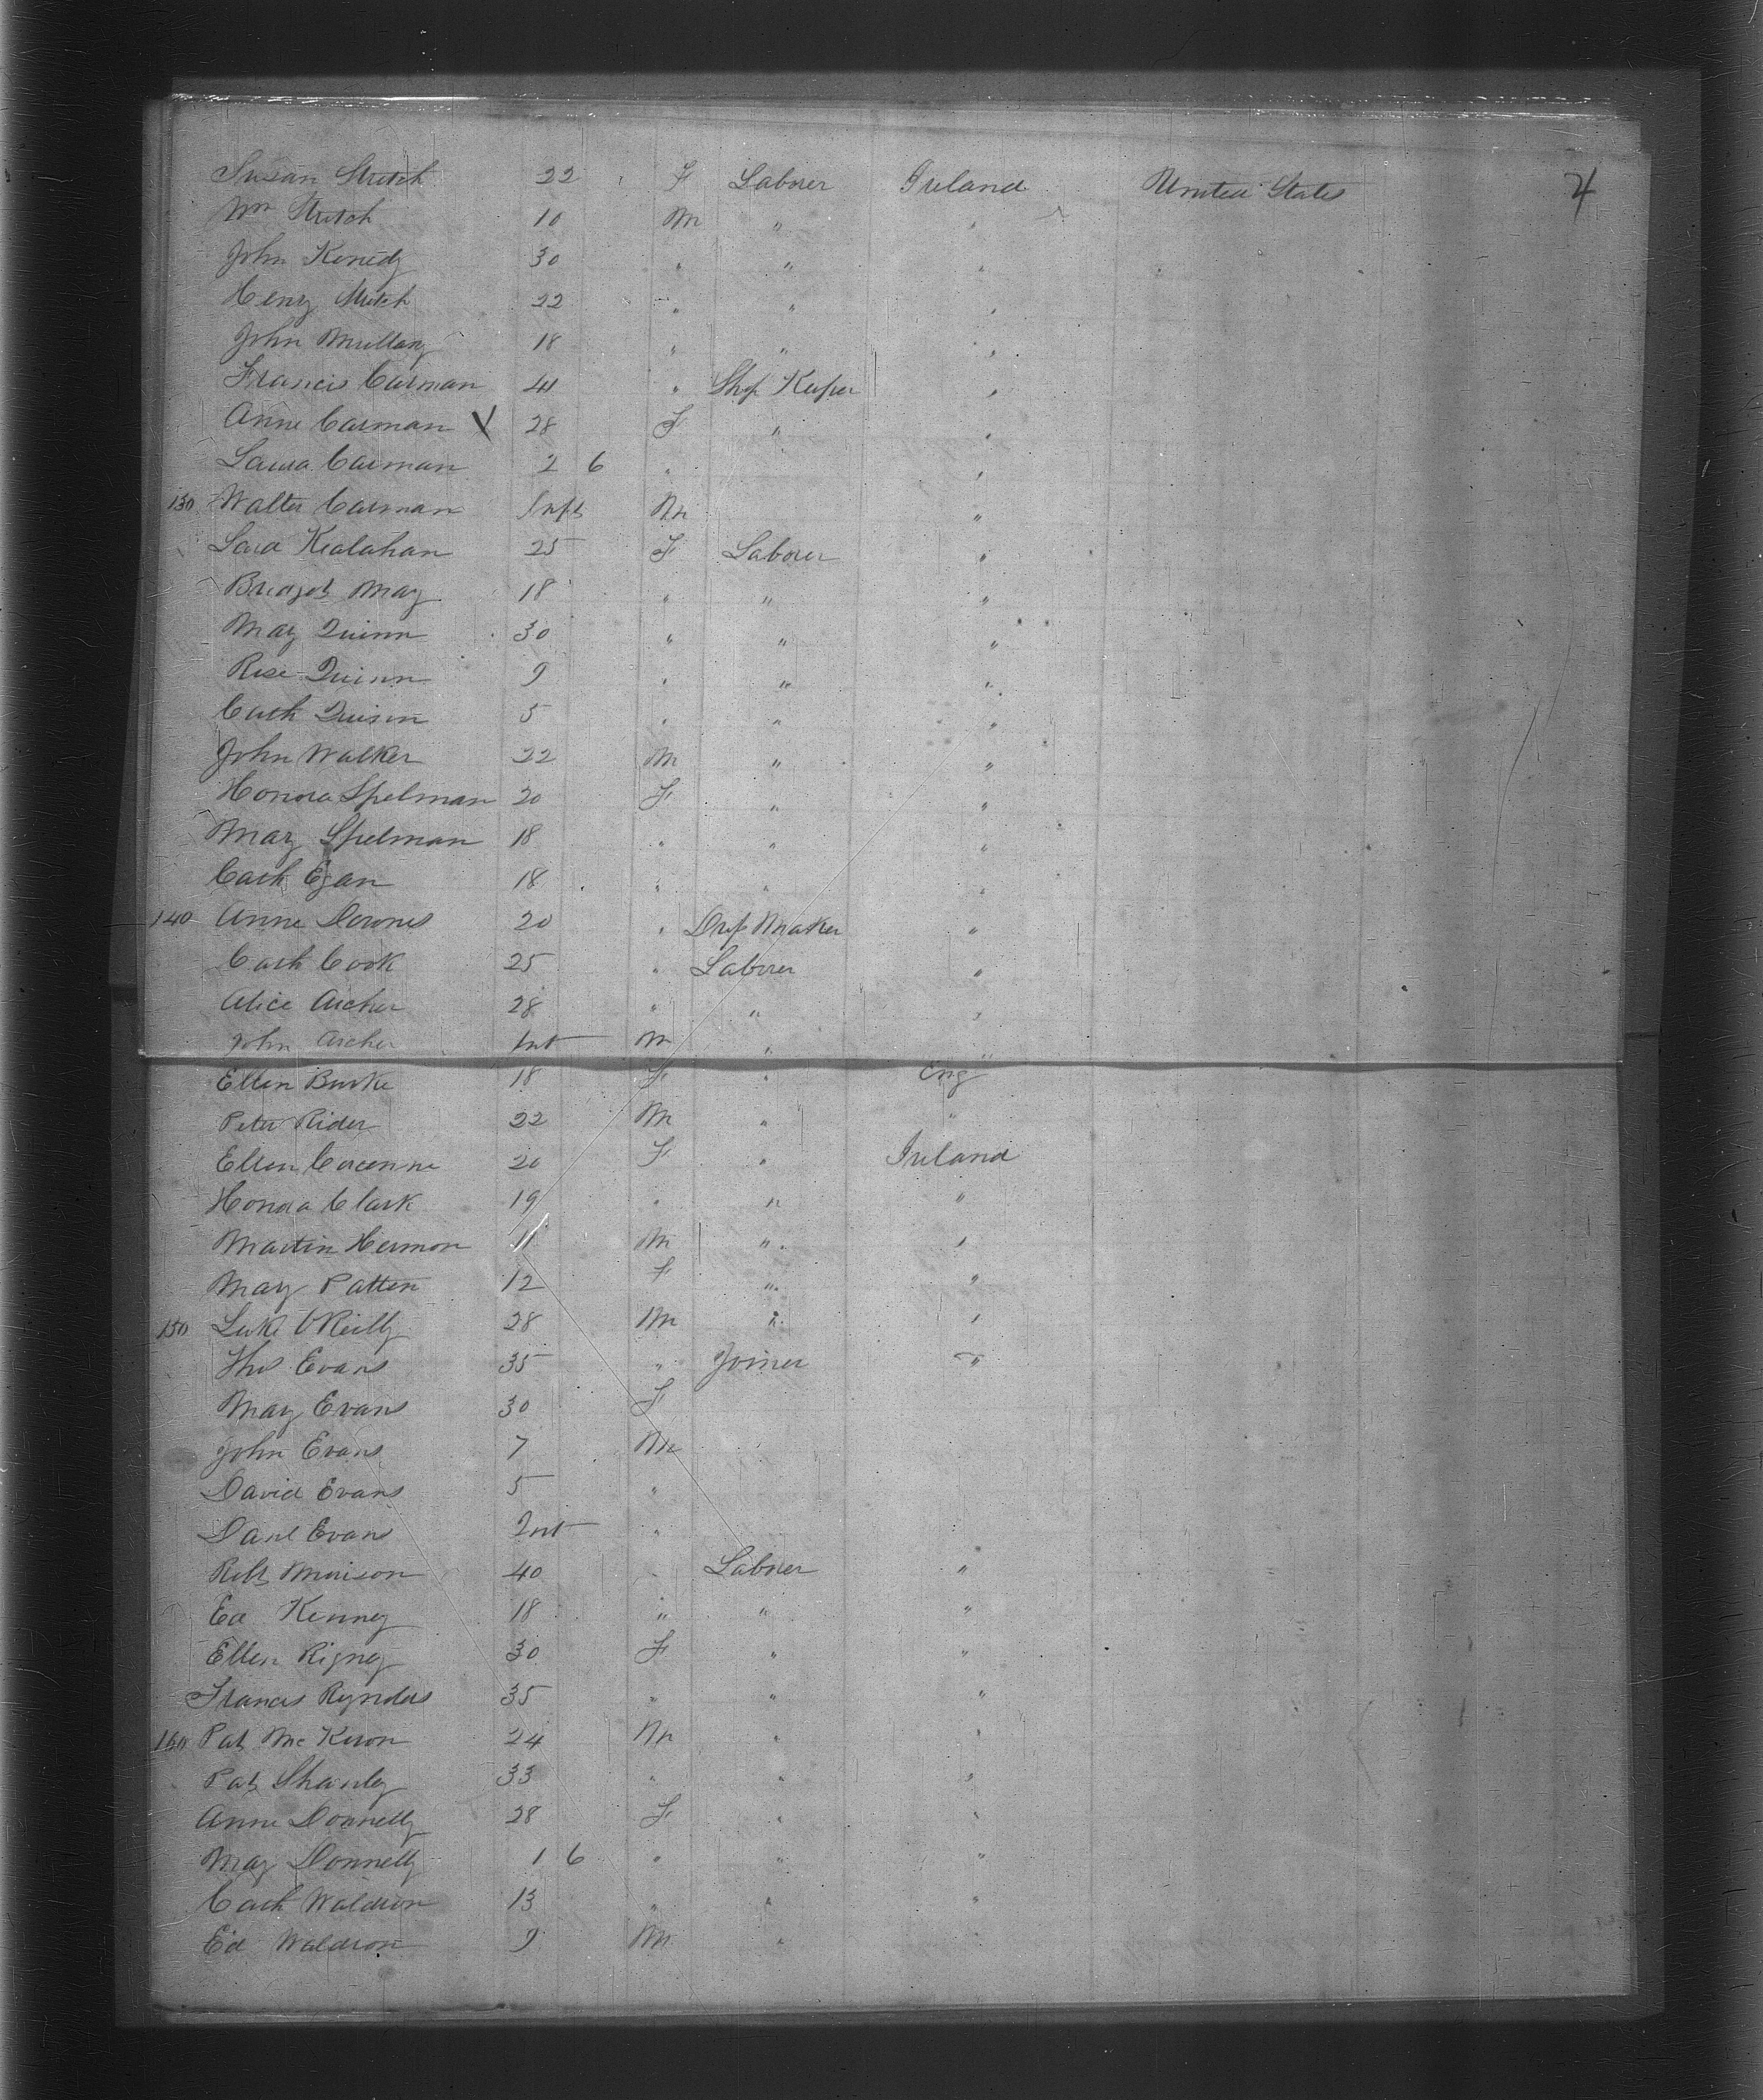 Susan Stretch 22 F Laborer Ireland United States 4
Wm Stretch 10 M " "
John Kenedy 30 " " "
Henry Stretch 22 " " "
John Mullany 18 " " "
Francis Carman 41 " Shop Keeper "
Anne Carman V 28 F " "
Laura Carman 2 6 " "
130 Walter Carman Inft M "
Sara Kealahan 25 F Laborer "
Bridget May 18 " " "
Mary Quinn 30 " " "
Rose Quinn 9 " " "
Cath Quinn 5 " " "
John Walker 22 M " "
Honora Spelman 20 F " "
Mary Spelman 18 " " "
Cath Egan 18 " " "
140 Anne Downes 20 " Drs Maker "
Cath Cook 25 " Laborer "
Alice Archer 28 " " "
John Archer Inf M " "
Ellen Burke 18 F " Eng
Peter Rider 22 M " "
Ellen 20 F " Ireland
Honora Clark 19 " " "
Martin Hermon 11 M " "
Mary Patten 12 F " "
150 Luke O'Reilly 28 M " "
Thos Evans 35 " Joiner "
Mary Evans 30 F
John Evans 7 M
David Evans 5 "
Danl Evans Inft "
Robt Morison 40 " Laborer "
Ed Kenney 18 " " "
Ellen Rigney 30 F " "
Francis Reynolds 35 " " "
160 Pat McKeron 24 M " "
Pat Shanley 33 " " "
Anne Donnelly 28 F " "
Mary Donnelly 1 6 " " "
Cath Waldron 13 " " "
Ed Waldron 9 M " "